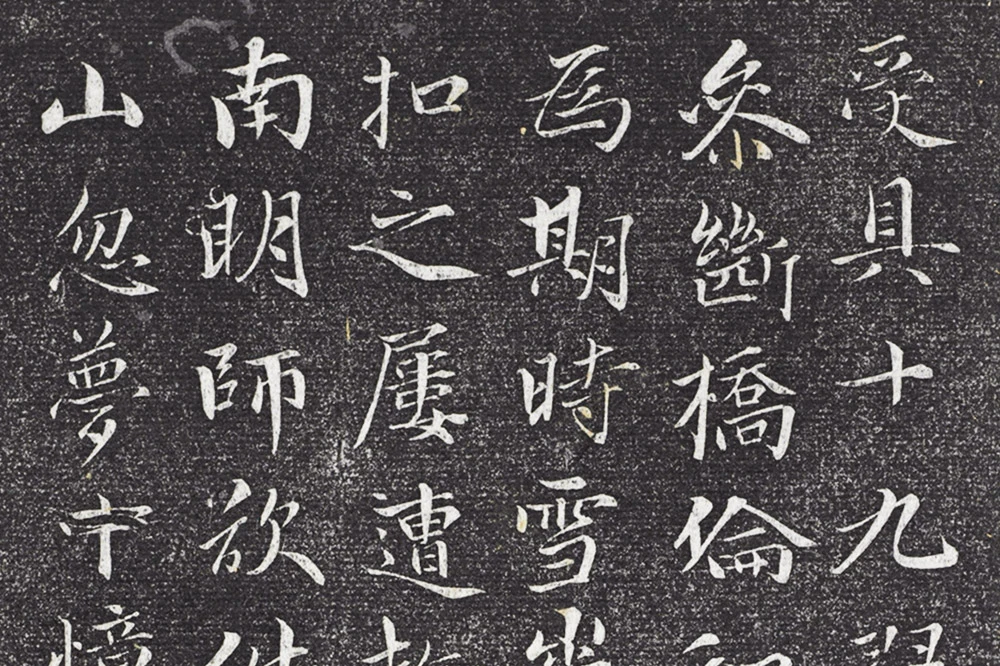 受具十九
參斷橋倫
為期時雪
扣之屢遭
南明師欲
山忽夢中